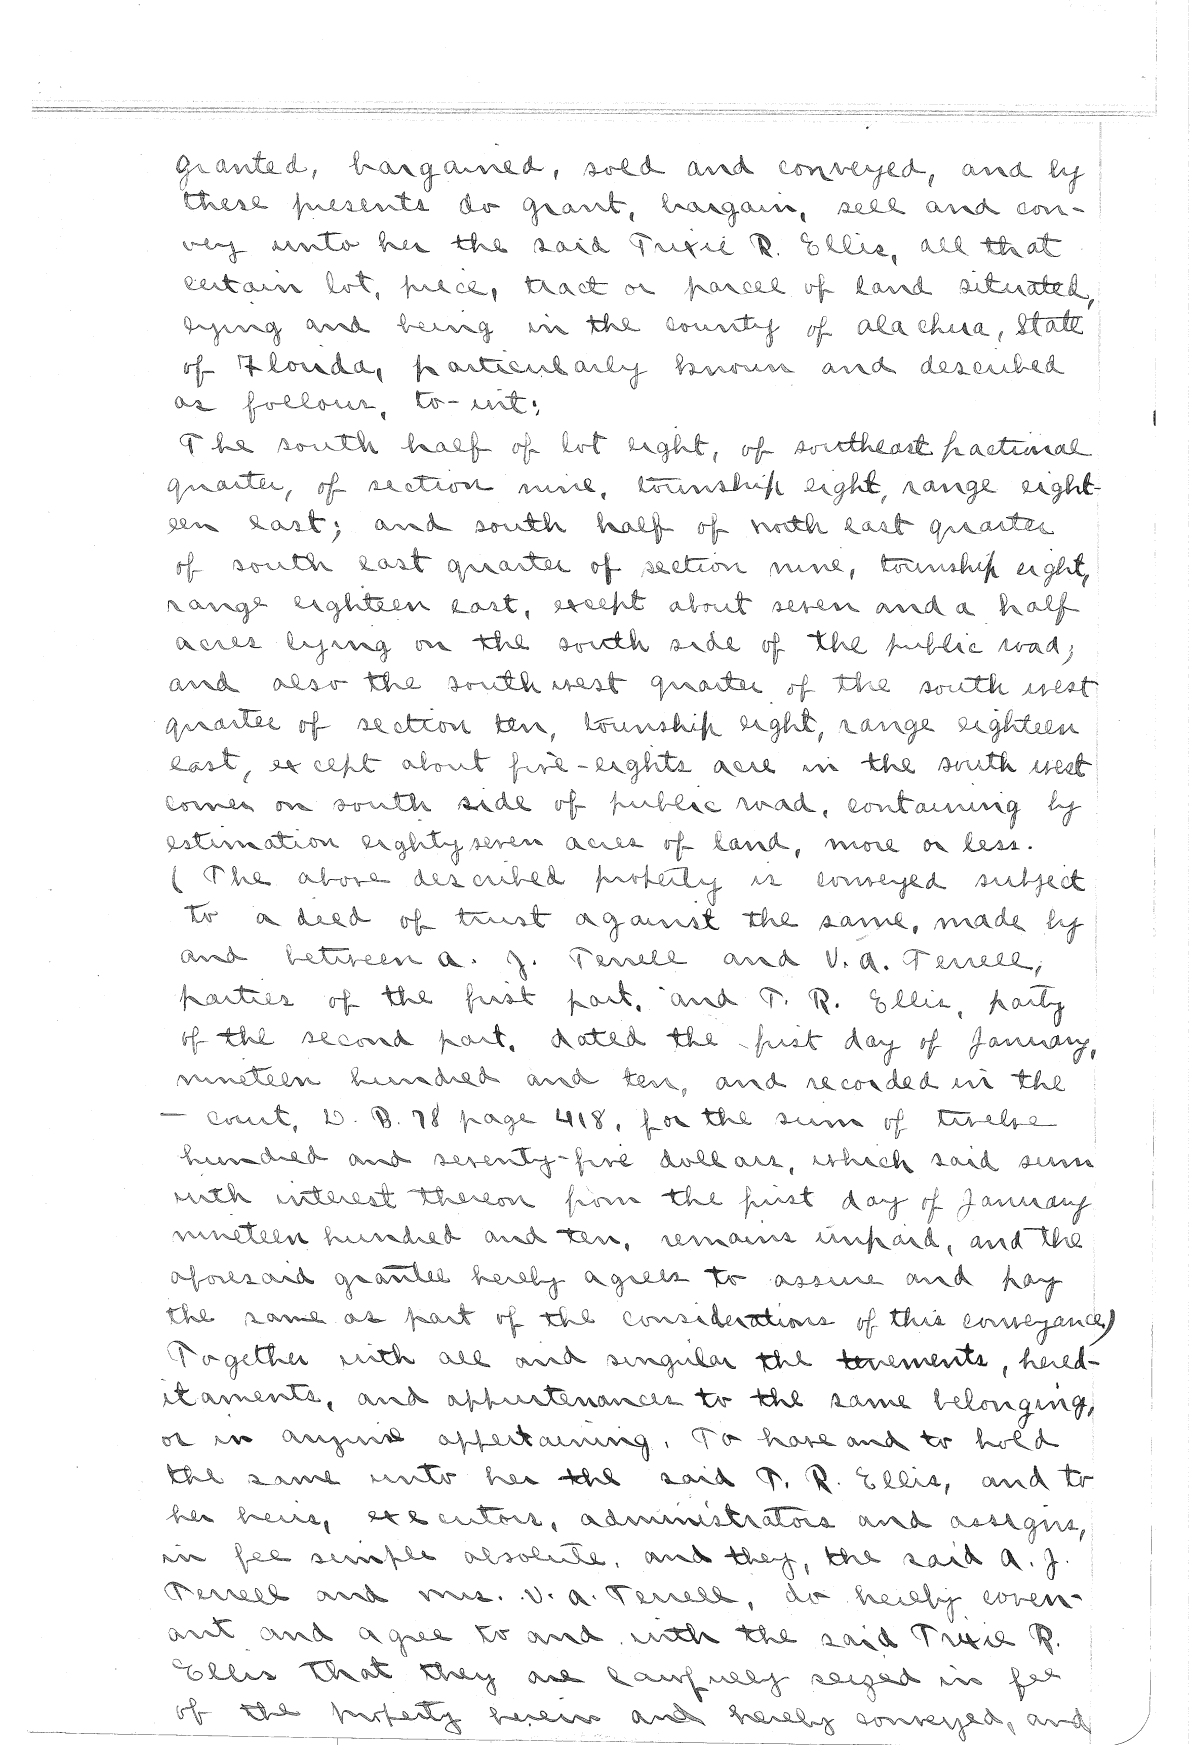 granted, bargained, sold and conveyed, and by
these presents do grant, bargain, sell and con-
vey unto her the said Trixie R. Ellis, all that
certain lot, piece, tract or parcel of land situated,
lying and being in the county of alachua, State
of Florida, particularly known and described
as follows, to-wit:
The south half of lot eight, of southeast fractional
quarter, of section nine, township eight, range eight-
een east; and south half of north east quarter
of south east quarter of section nine, township eight,
range eighteen east, except about seven and a half
acres lying on the south side of the public road;
and also the south west quarter of the south west
quarter of section ten, township eight, range eighteen
east, except about five-eights acre in the south west
corner on south side of public road, containing by
estimation eighty seven acres of land, more or less.
( The above described property is conveyed subject
to a deed of trust against the same, made by
and between a. J. Terrell and V. A. Terrell,
parties of the first part, and T. R. Ellis, party
of the second part, dated the first day of January,
nineteen hundred and ten, and recorded in the
— court, D. B. 78 page 418, for the sum of twelve
hundred and seventy-five dollars, which said sum
with interest thereon from the first day of January
nineteen hundred and ten, remains unpaid, and the
aforesaid grantee hereby agrees to assume and pay
the same as part of the considerations of this conveyance)
Together with all and singular the tenements, hered-
itaments, and appurtenances to the same belonging,
or in anywise appertaining. To have and to hold
the same unto her the said T. R. Ellis, and to
her heirs, executors, administrators and assigns,
in fee simple absolute. and they, the said A. J.
Terrell and mrs. V. A. Terrell, do hereby coven-
ant and agree to and with the said Trixie R.
Ellis that they are lawfully seized in fee
of the property herein and hereby conveyed, and